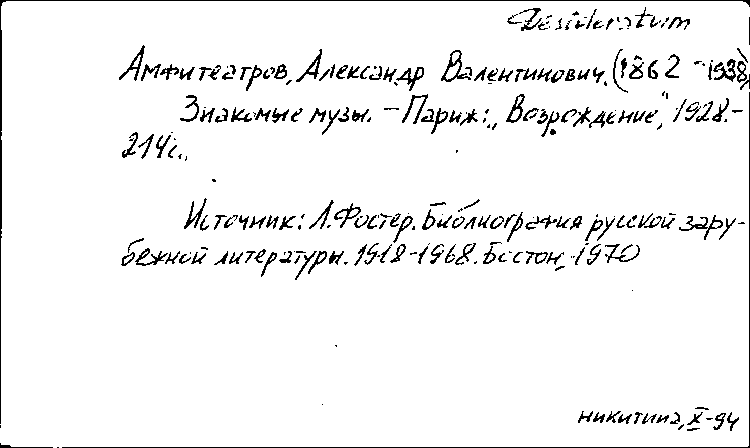 Desideratum
Амфитеатров, Александр Валентинович. (1862 - 1938)
Знакомые музы. - Париж: „Возрождение", 1928.-
214с.,
Источник: Л.Фостер. Библиография русской зару-
бежной литературы. 1918-1968. Бостон, 1970
никитина, X-94